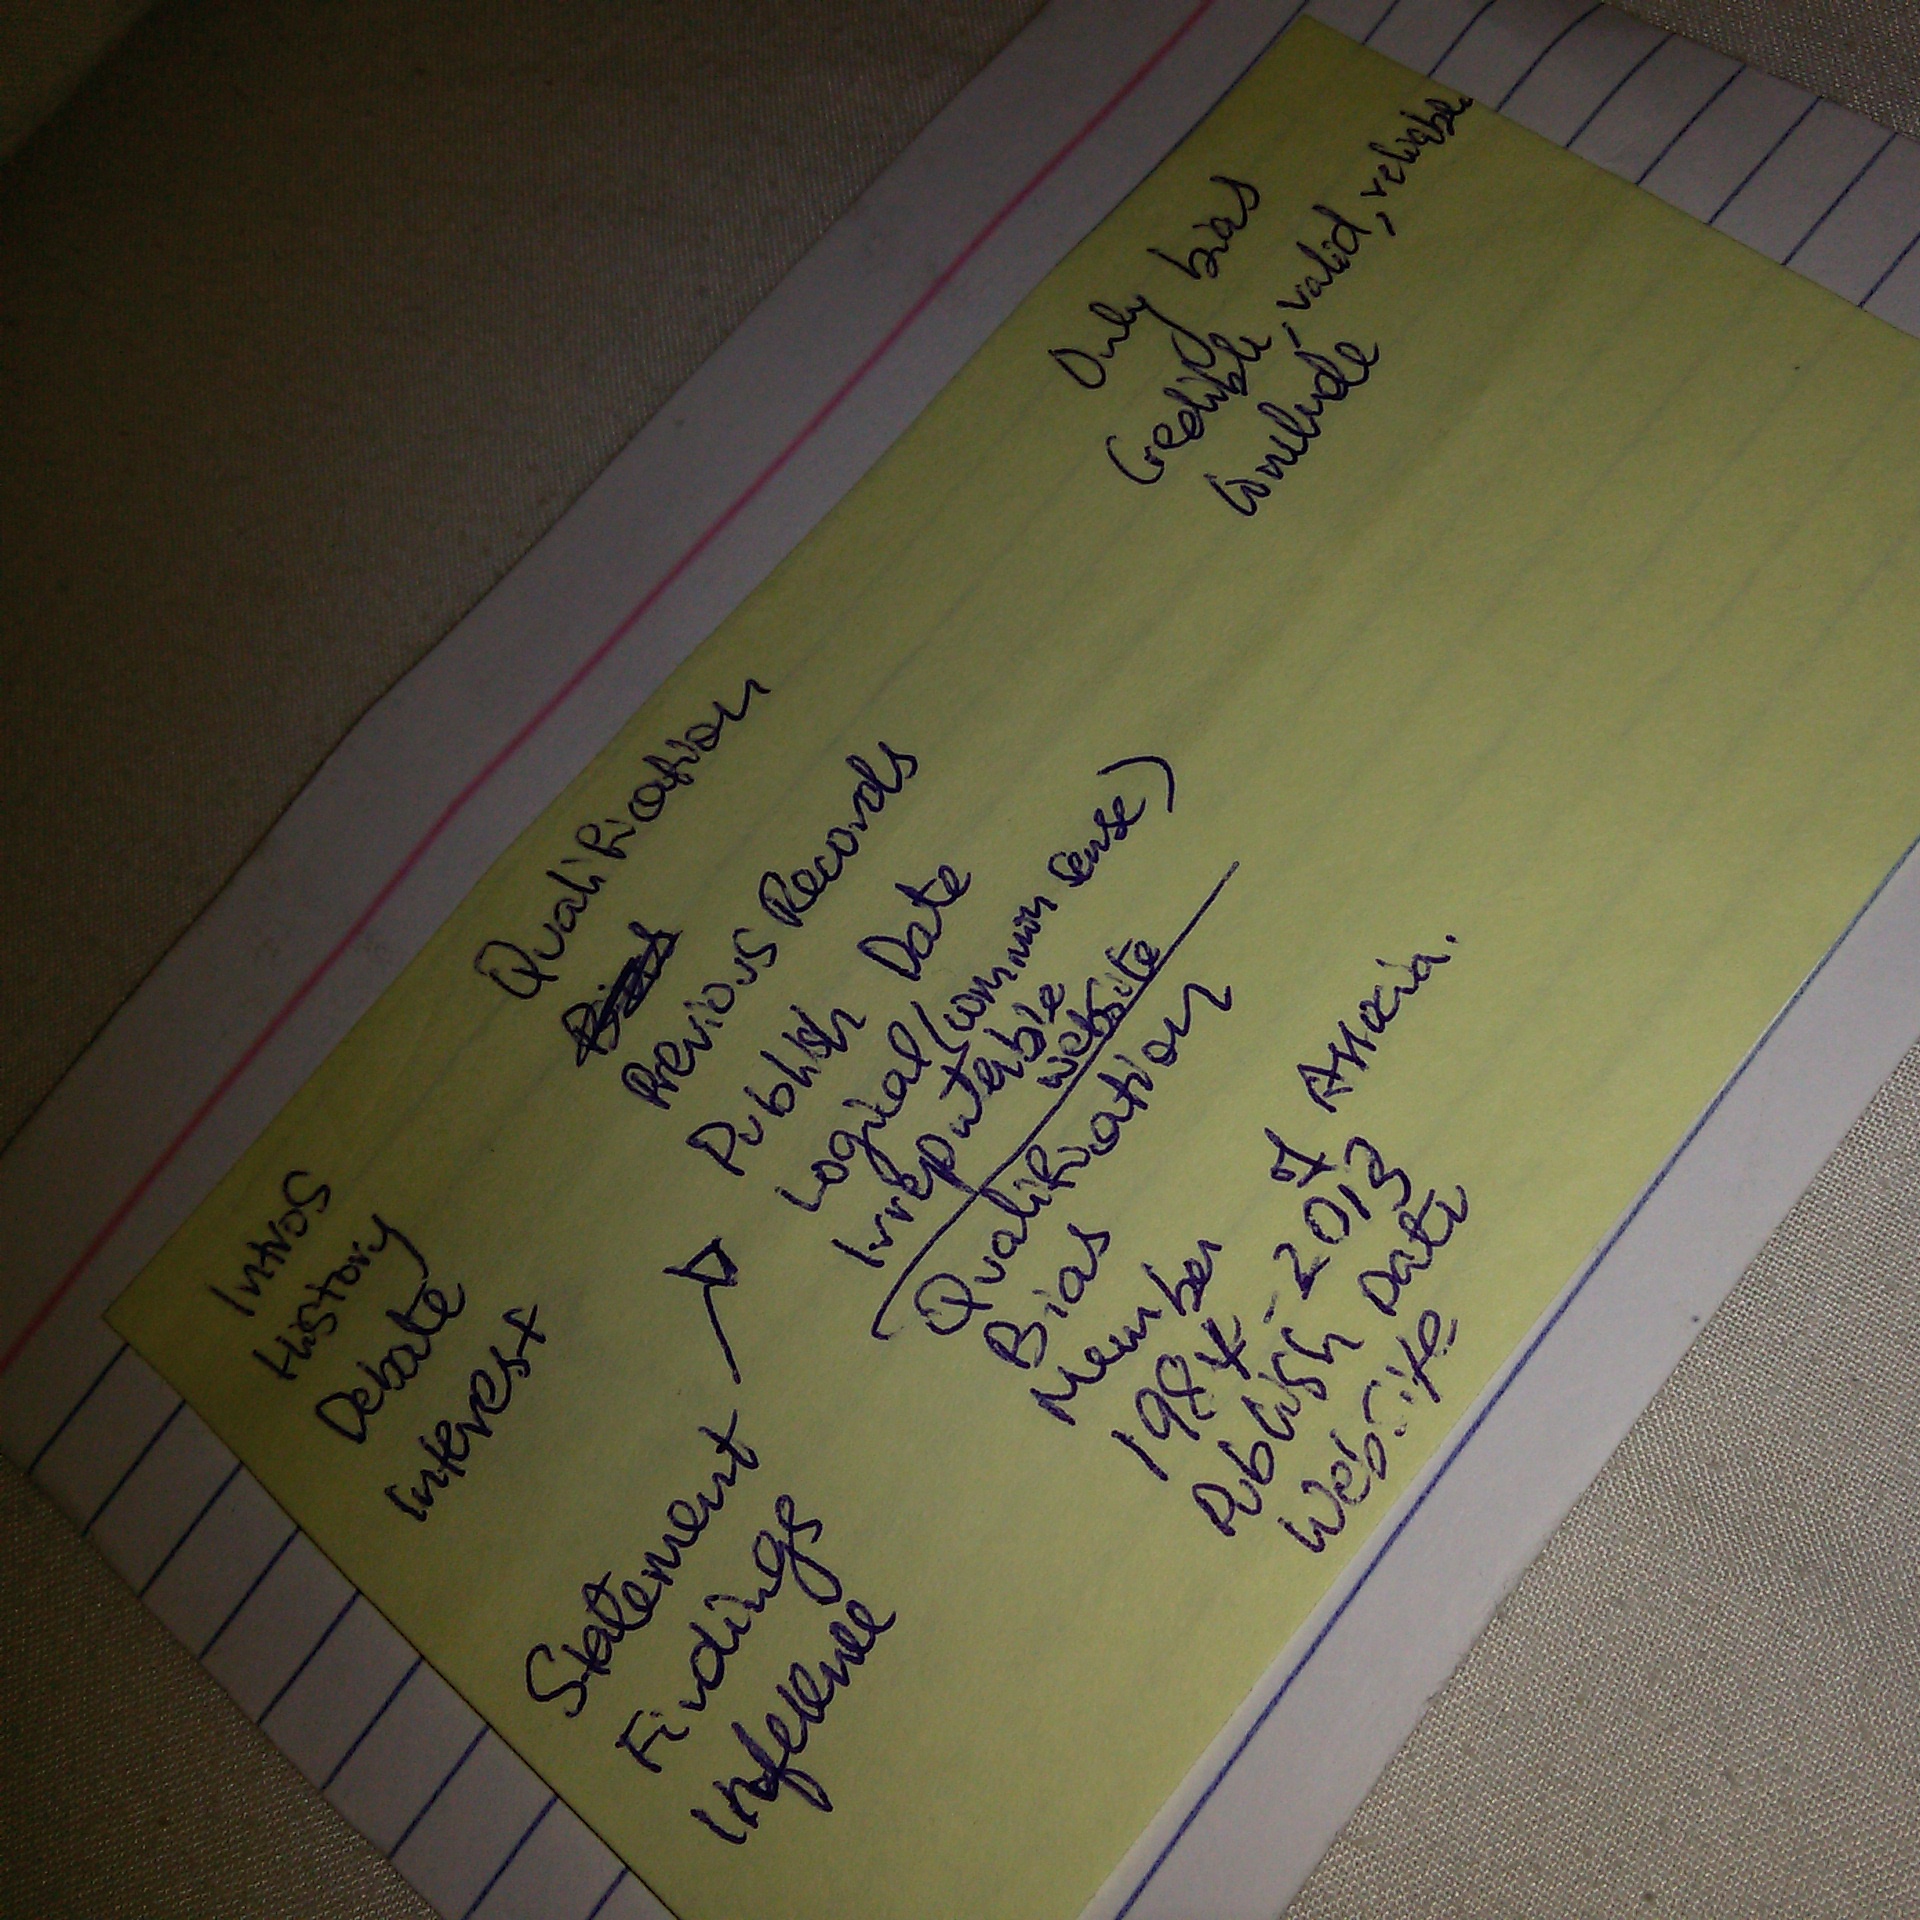 Intros
History
Debate
Interest
Statement
Findings
Inference
Qualification
Previous Records
Publish Date
Logical (common sense)
Irreputenble
website
Qualification
Bias
Member
1984 - 2013
Publish Date
Website
Only bias
Credible, valid, reliable
Conclude